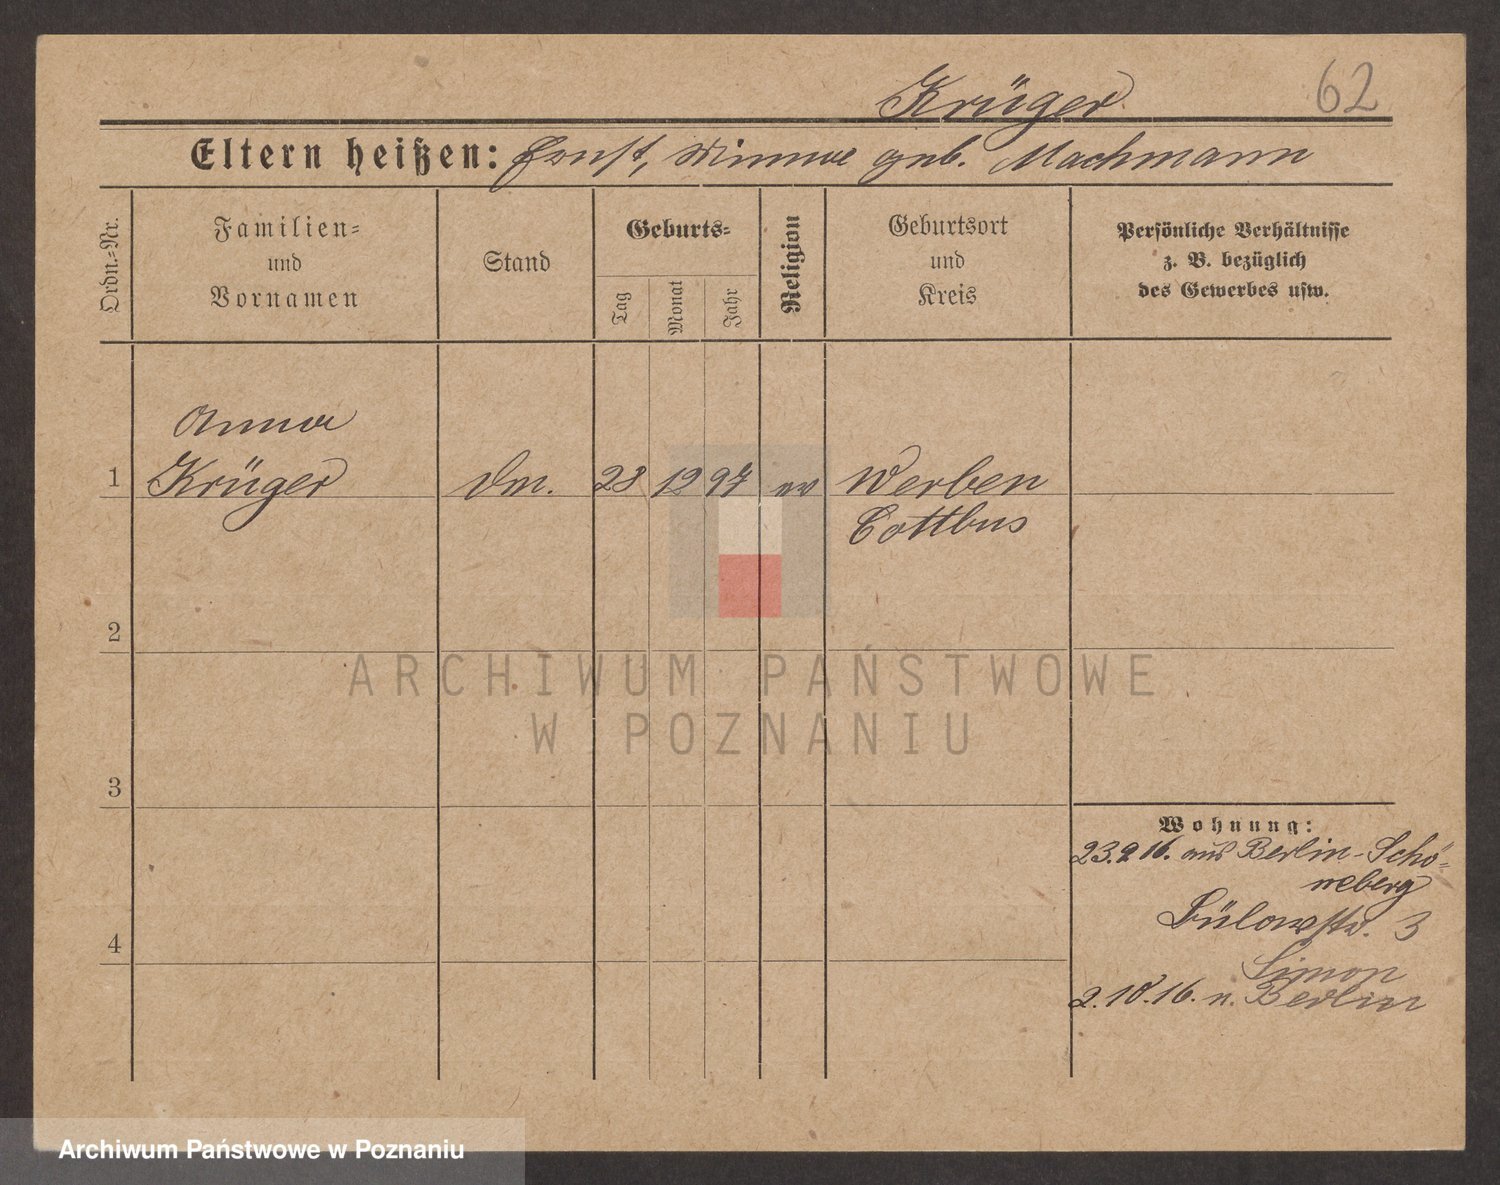 Krüger 62
Eltern heißen: Ernst, Minna geb. Machmann
Ordn.-Nr.
Familien-
und
Vornamen
Stand
Geburts-
Tag
Monat
Jahr
Religion
Geburtsort
und
Kreis
Persönliche Verhältnisse
z. B. bezüglich
des Gewerbes usw.
Anna
1 Krüger 28 12 97 ev Werben
Cottbus
2
3
4
Wohnung:
23.9.16. aus Berlin-Schö-
neberg
Bülowstr. 3
Simon
2.10.16. n. Berlin
ARCHIWUM PAŃSTWOWE
W POZNANIU
Archiwum Państwowe w Poznaniu